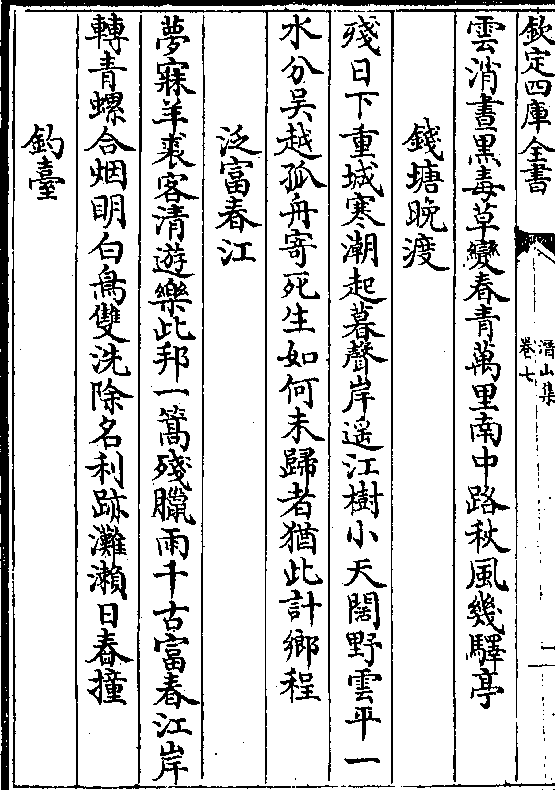 欽定四庫全書
潛山集
卷七
一
雲消晝黒毒草變春青萬里南中路秋風幾驛亭
錢塘晩渡
殘日下重城寒潮起暮聲岸遥江樹小天闊野雲平一
水分吳越孤舟寄死生如何未歸者猶此計鄉程
泛富春江
夢寐羊裘客清遊樂此邦一篙殘臘雨千古富春江岸
轉青螺合烟明白鳥雙洗除名利跡灘瀨日舂撞
釣臺